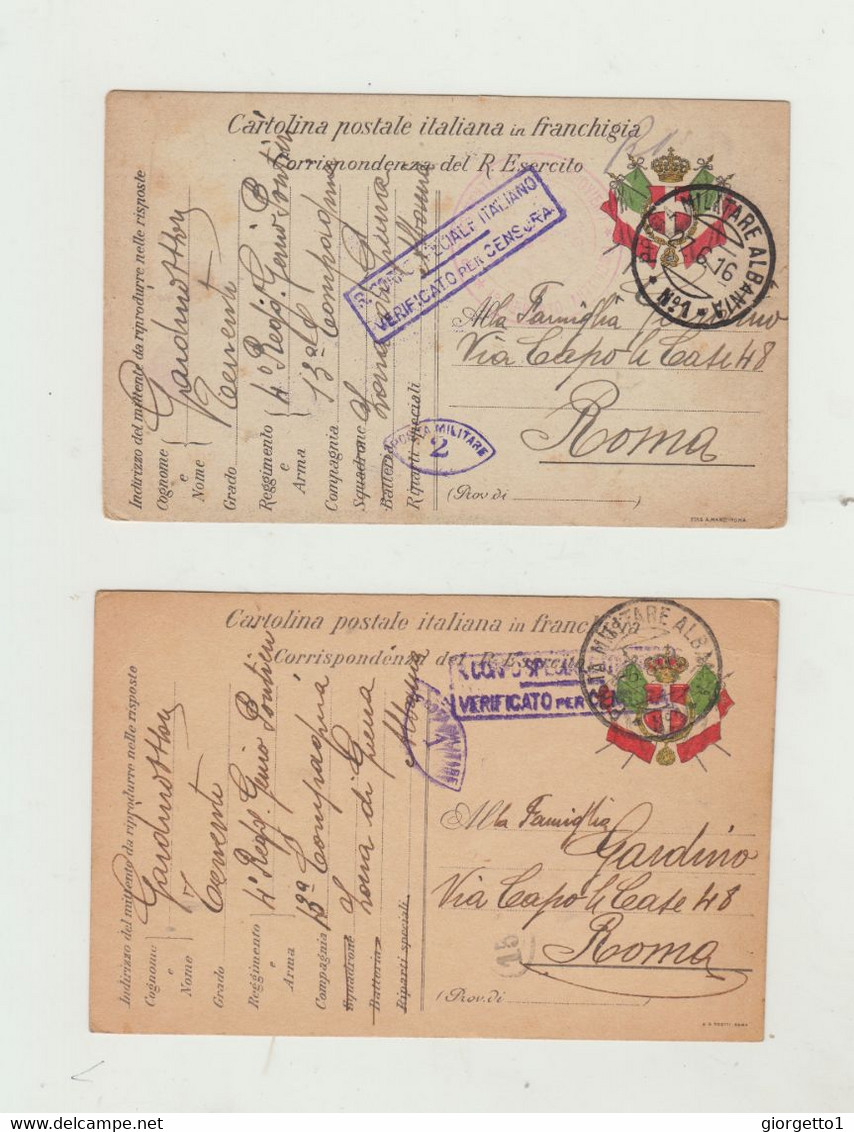 Cartolina postale italiana in franchigia
Corrispondenza del R. Esercito
R. CORPO SPECIALE ITALIANO
VERIFICATO PER CENSURA
POSTA MILITARE ALBANIA
7.6.16
* No 1 *
Alla Famiglia
Via Capo le Case 48
Roma
(Prov. di )
POSTA MILITARE
2
Indirizzo del mittente da riprodurre nelle risposte
Cognome
e
Nome
Grado Tenente
Reggimento 4° Regg. Genio
e
Arma
Compagnia 13a Compagnia
Squadrone
Batteria Zona di Guerra
Riparti speciali Albania
Cartolina postale italiana in franchigia
Corrispondenza del R. Esercito
VERIFICATO PER
POSTA MILITARE ALBA
Alla Famiglia
Gardino
Via Capo le Case 48
Roma
15
(Prov. di )
Indirizzo del mittente da riprodurre nelle risposte
Cognome
e
Nome
Grado Tenente
Reggimento 4° Regg. Genio
e
Arma
Compagnia 13a Compagnia
Squadrone
Batteria Zona di Guerra
Riparti speciali Albania
www.delcampe.net
giorgetto1